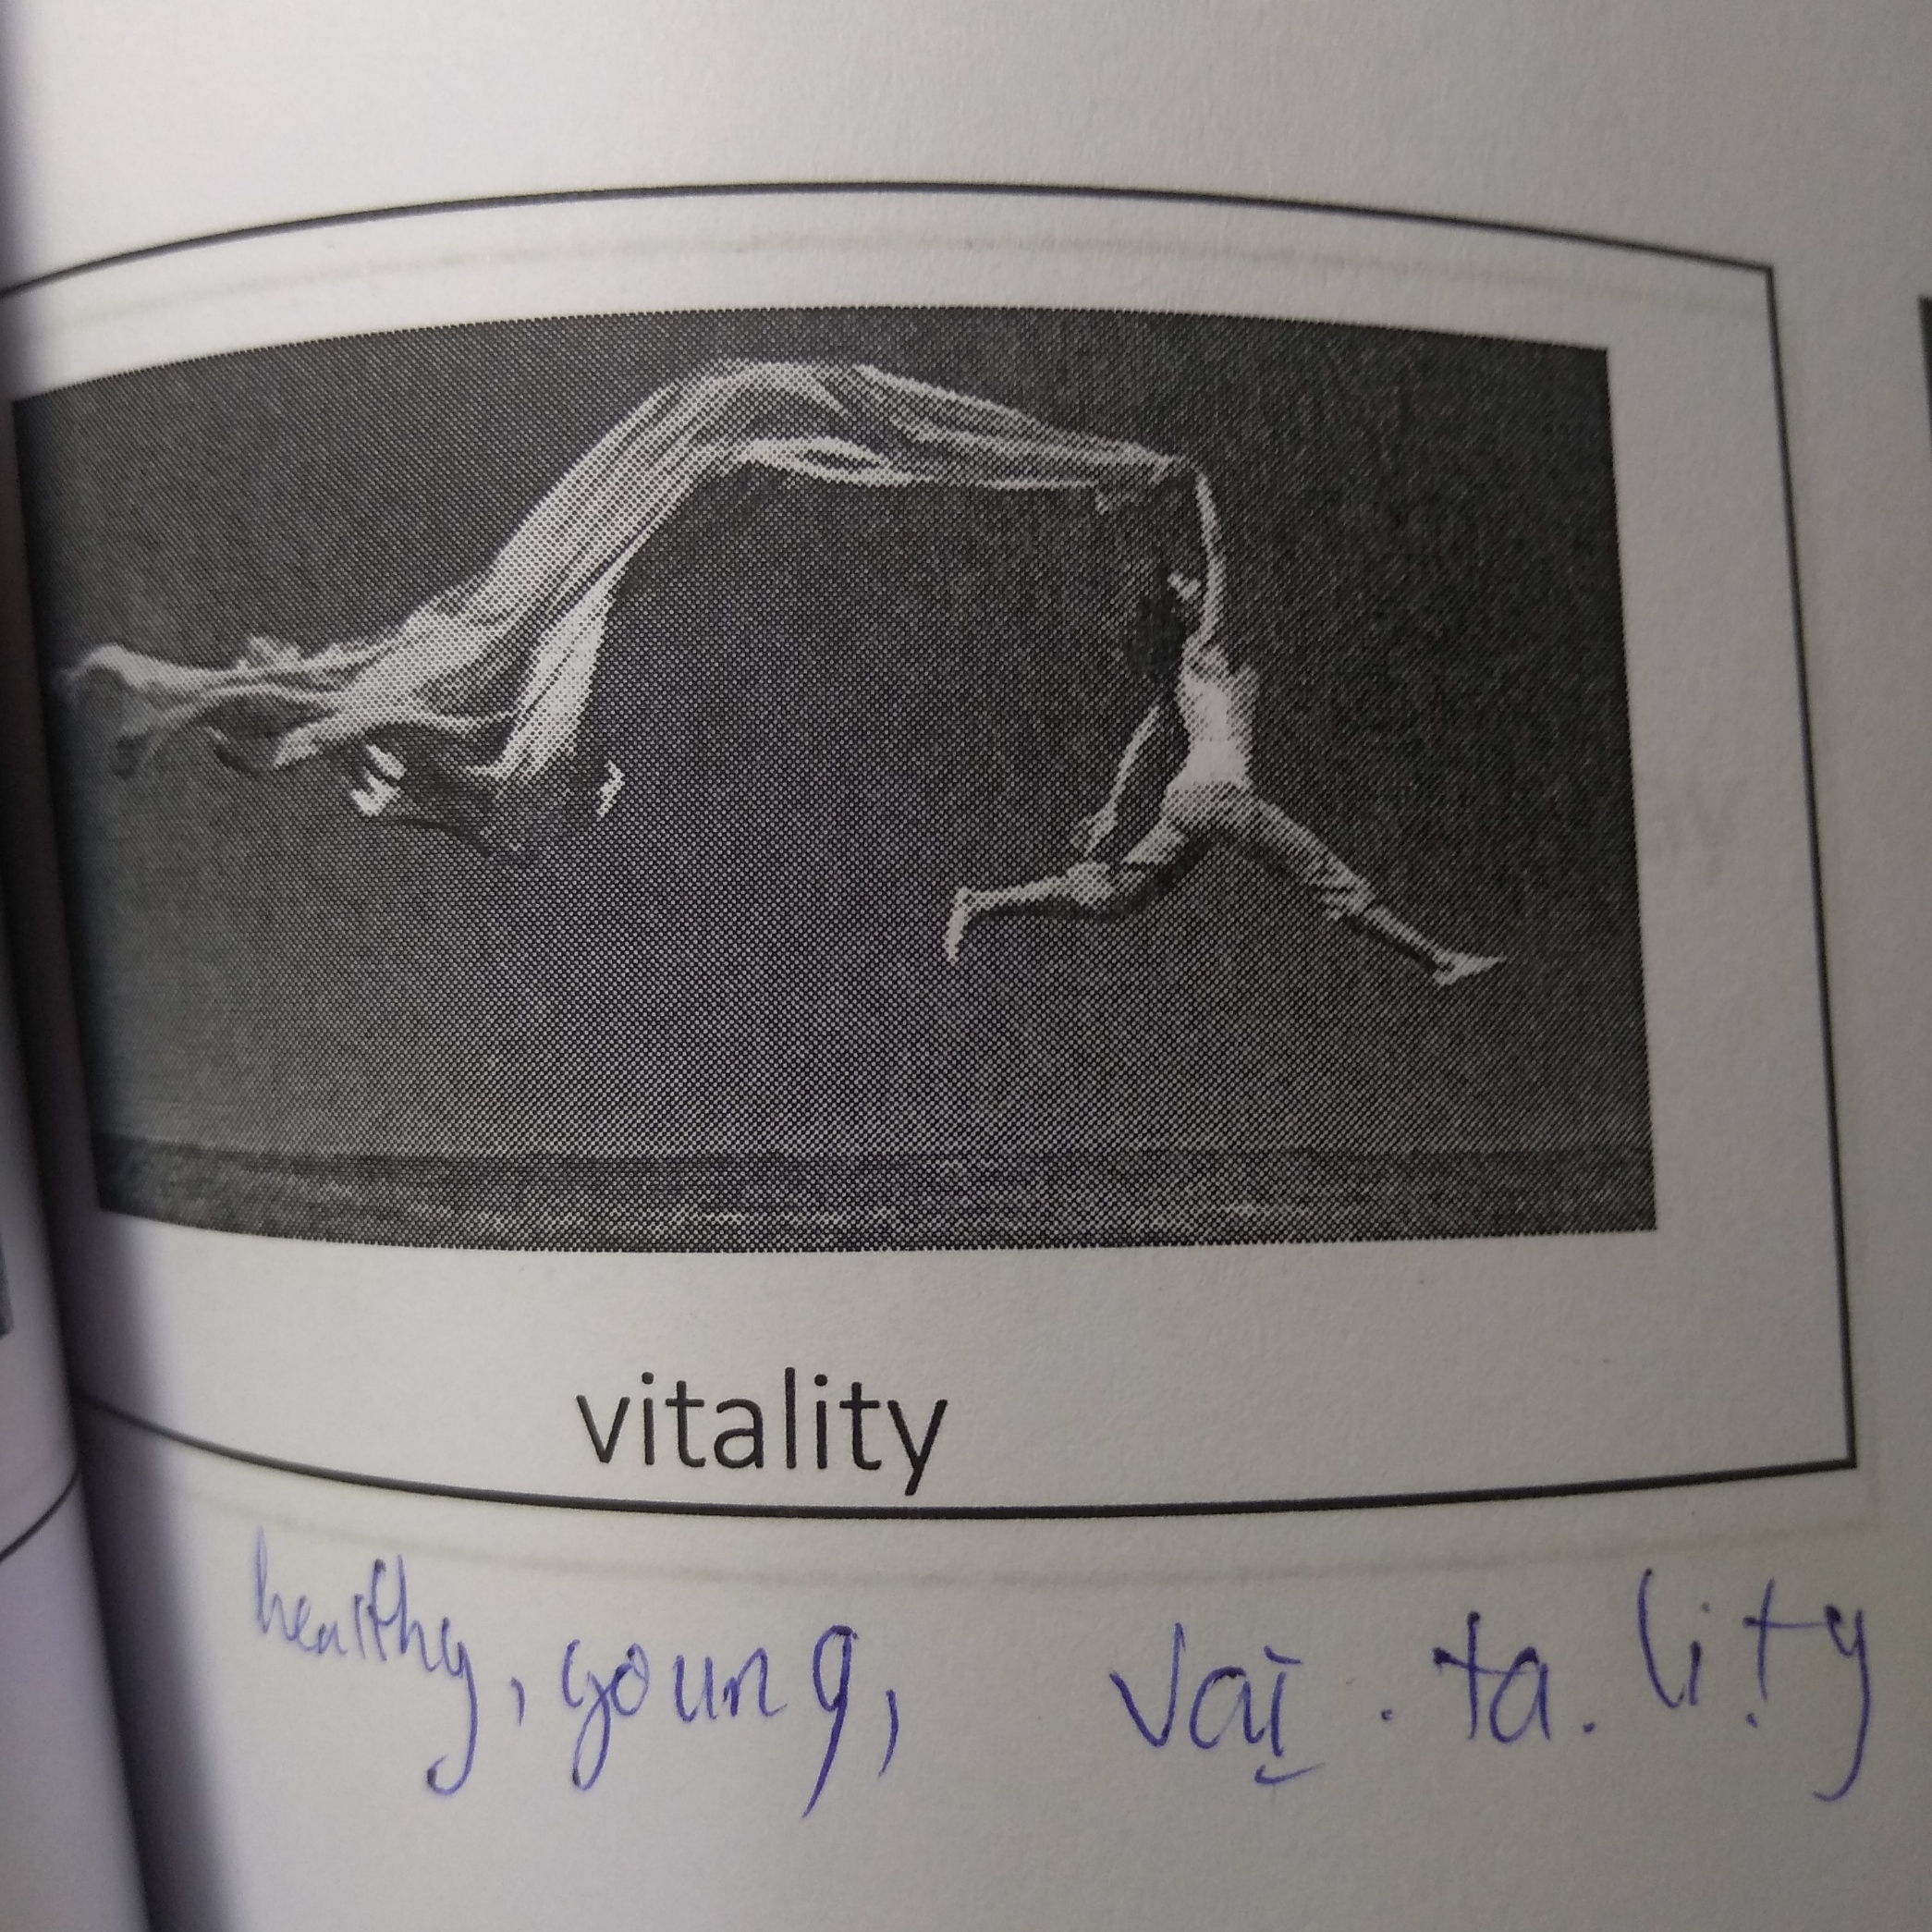 vitality
healthy, young, vai . ta . li . ty